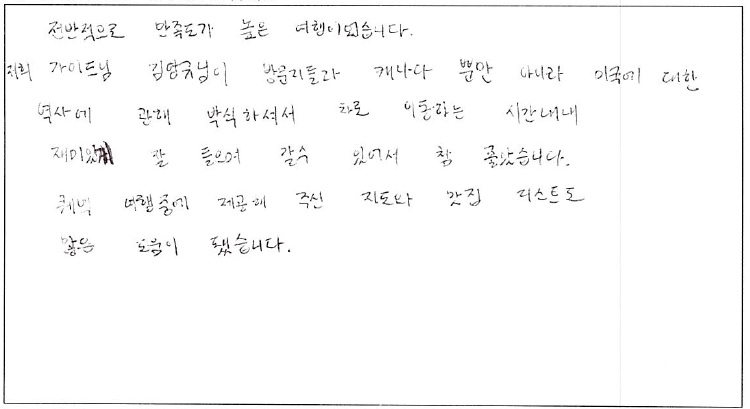 전반적으로 만족도가 높은 여행이었습니다.
저희 가이드님 김영규님이 방문지들과 캐나다 뿐만 아니라 미국에 대한
역사에 관해 박식하셔서 차로 이동하는 시간내내
재미있게 잘 들으며 갈수 있어서 참 좋았습니다.
퀘벡 여행중에 제공해 주신 지도와 맛집 리스트도
많은 도움이 됐습니다.